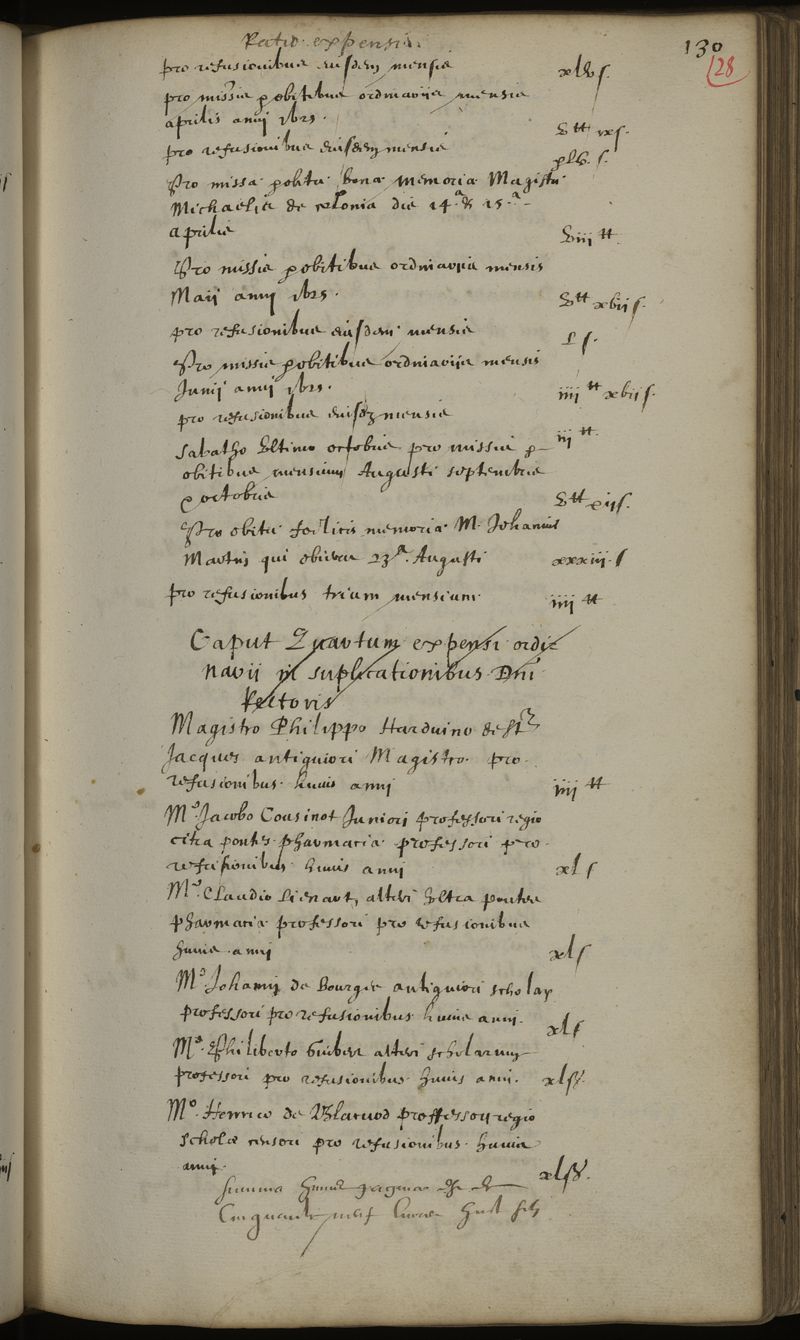 Ratio expensi
130
128
pro refusionibus eiusdem mensis xlv s.
pro missis p obitibus ordinariis mensis
aprilis anni 1625.
v tt xs.
pro refusionibus eiusdem mensis
xlv. s.
Pro missa p obitu bonæ memoriæ Magistri
Michaelis de die 14.a & 15.a
aprilis viii tt
Pro missis p obitibus ordinariis mensis
Maii anni 1625. v tt xvii s.
pro refusionibus eiusdem mensis l s.
Pro missis p obitibus ordinariis mensis
Junij anni 1625. iiii tt xvii s.
pro refusionibus eiusdem mensis iii tt
Sabatho Vltimo octobris pro missis p
obitibus mensium Augusti septembris
& octobris v tt xii s.
Pro obitu fœlicis memoriæ M. Johannis
Martin qui 23.a Augusti xxxiii s
pro refusionibus trium mensium iiii tt
Caput Quartum expensi ordi-
narii in suplicationibus Dni
Rectoris
Magistro Philippo Harduino de St
Jacques antiquiori Magistro pro
refusionibus huius anni iiii tt
M.o Jacobo Cousinot Juniori professori regio
citra pontes pharmaciæ professori pro
refusionibus huius anni xl s
M.o Claudio Lienart, alteri Vltra pontes
pharmaciæ professori pro refusionibus
huius anni xl s
M.o Johanni de Bourges antiquiori scholar
professori pro refusionibus huius anni. xl s
M.o Philiberto Guibert alteri scholarum
professori pro refusionibus huius anni. xl s.
M.o Henrico de Blacuod proffessori regio
scholæ censori pro refusionibus huius
anni. xl s.
summa huius paginæ est de
Cinquante neuf livres huit sols